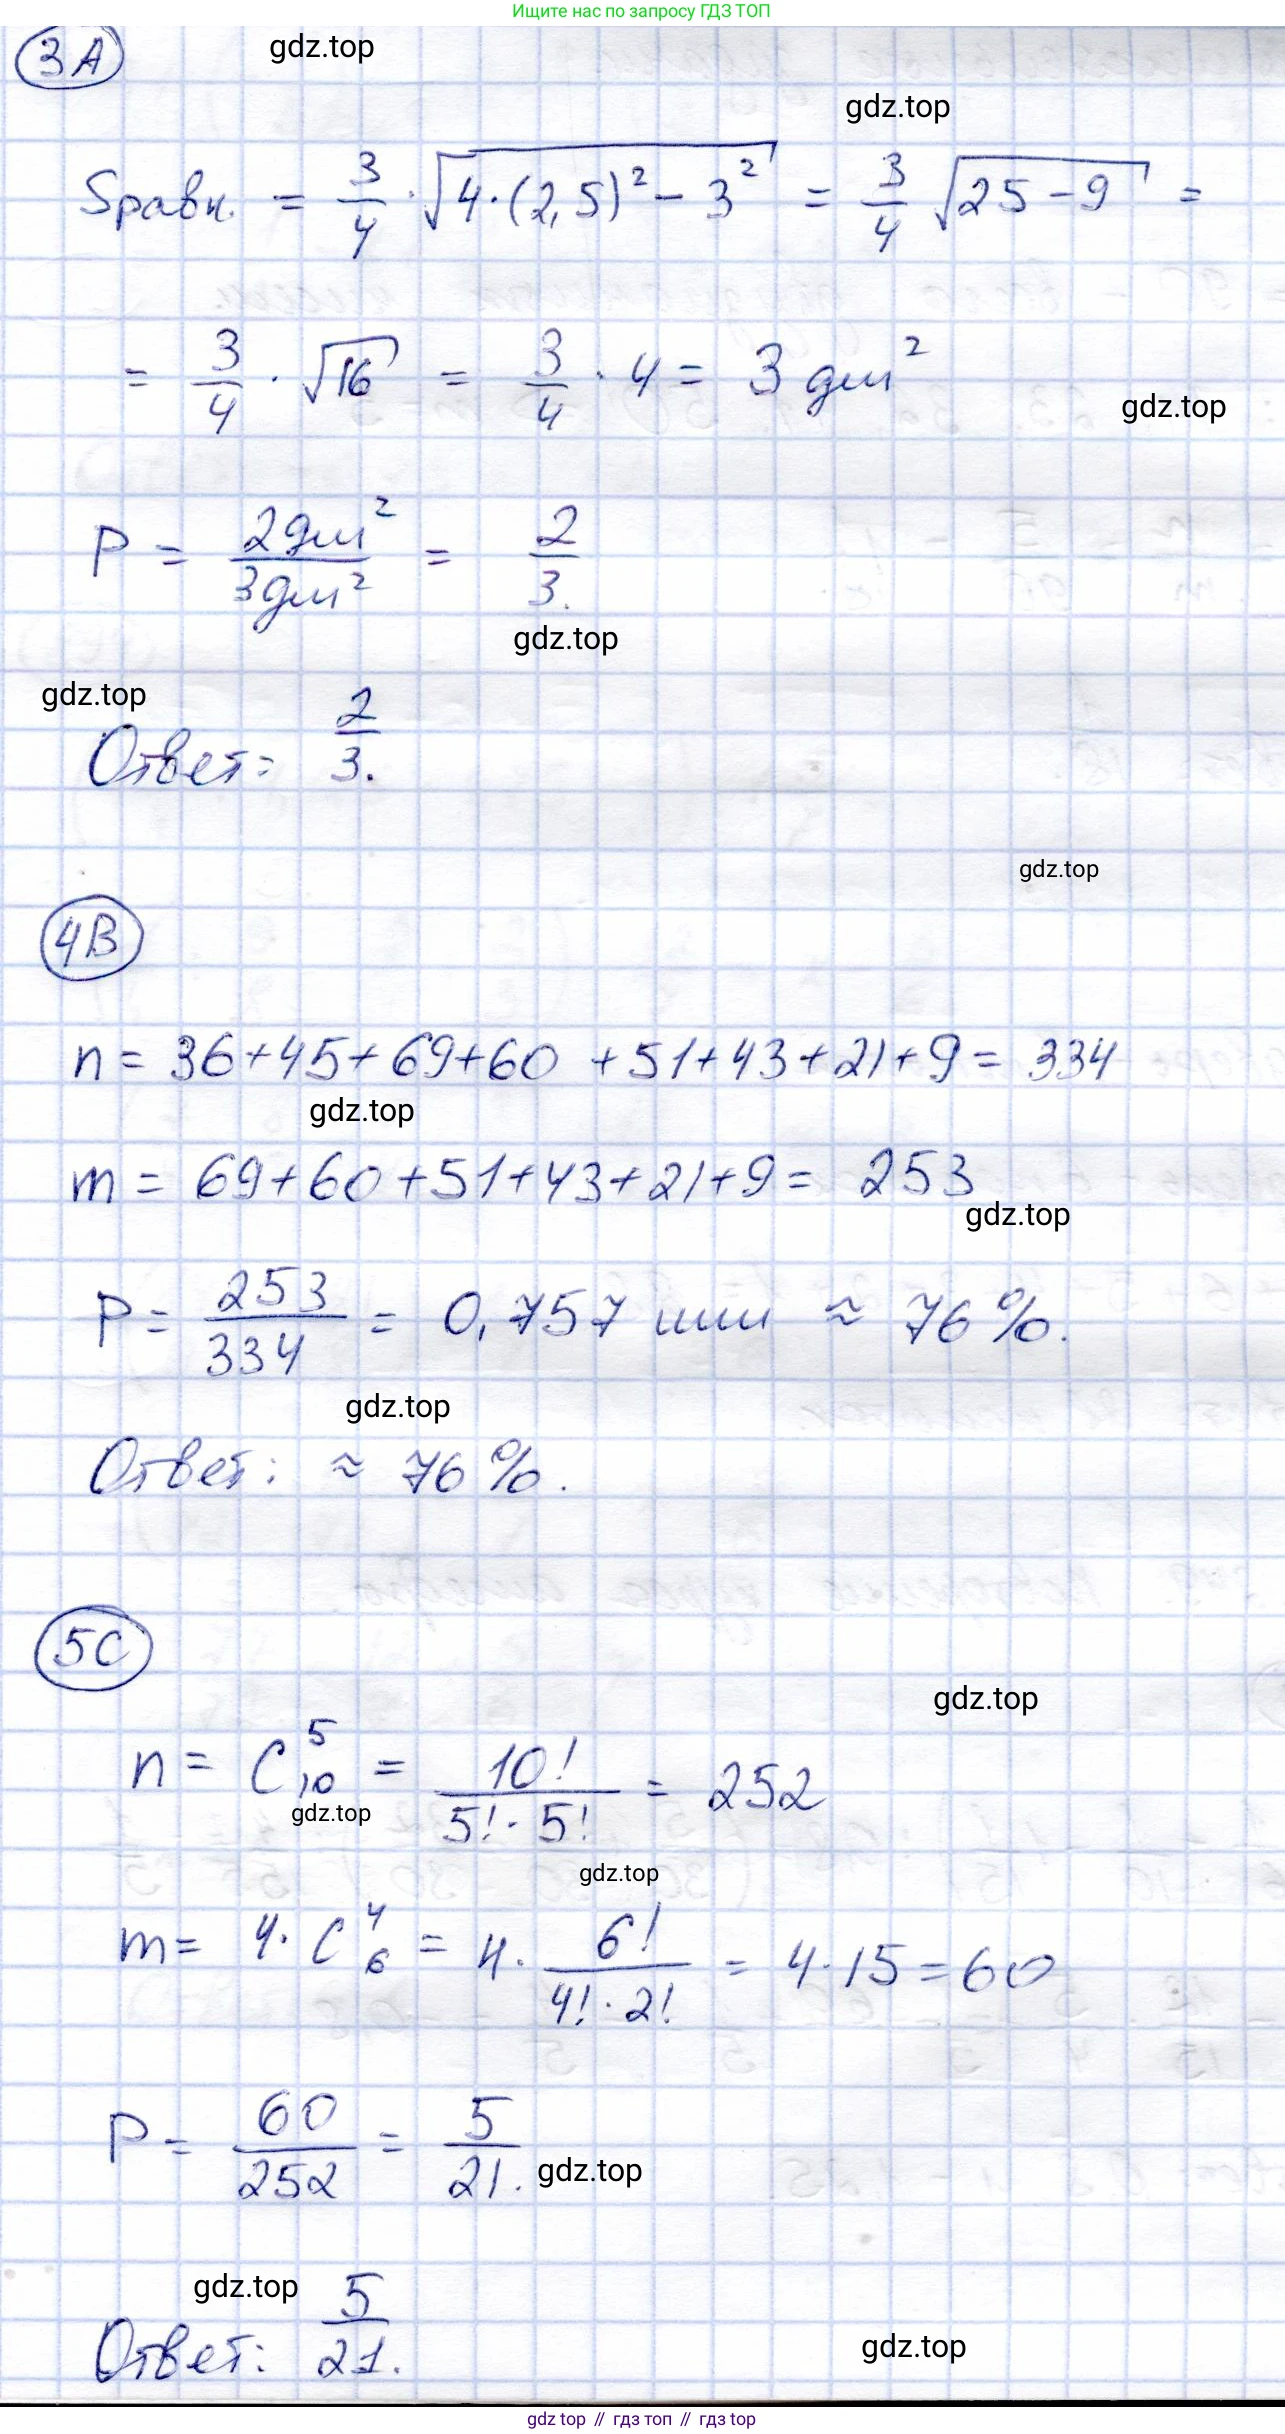 Ищите нас по запросу ГДЗ ТОП
3А
gdz.top
gdz.top
Sравн. = 3/4 · √(4·(2,5)² − 3²) = 3/4 √(25−9) =
= 3/4 · √16 = 3/4 · 4 = 3 дм²
gdz.top
P = 2дм²/3дм² = 2/3.
gdz.top
gdz.top
Ответ: 2/3.
gdz.top
4В
n = 36+45+69+60 +51+43+21+9 = 334
gdz.top
m = 69+60+51+43+21+9 = 253
gdz.top
P = 253/334 = 0,757 или ≈ 76%.
gdz.top
Ответ: ≈ 76%.
5С
gdz.top
n = C⁵₁₀ = 10!/(5!·5!) = 252
gdz.top
gdz.top
m = 4·C⁴₆ = 4· 6!/(4!·2!) = 4·15=60
P = 60/252 = 5/21.
gdz.top
gdz.top
Ответ: 5/21.
gdz.top
gdz top // гдз топ // гдз top